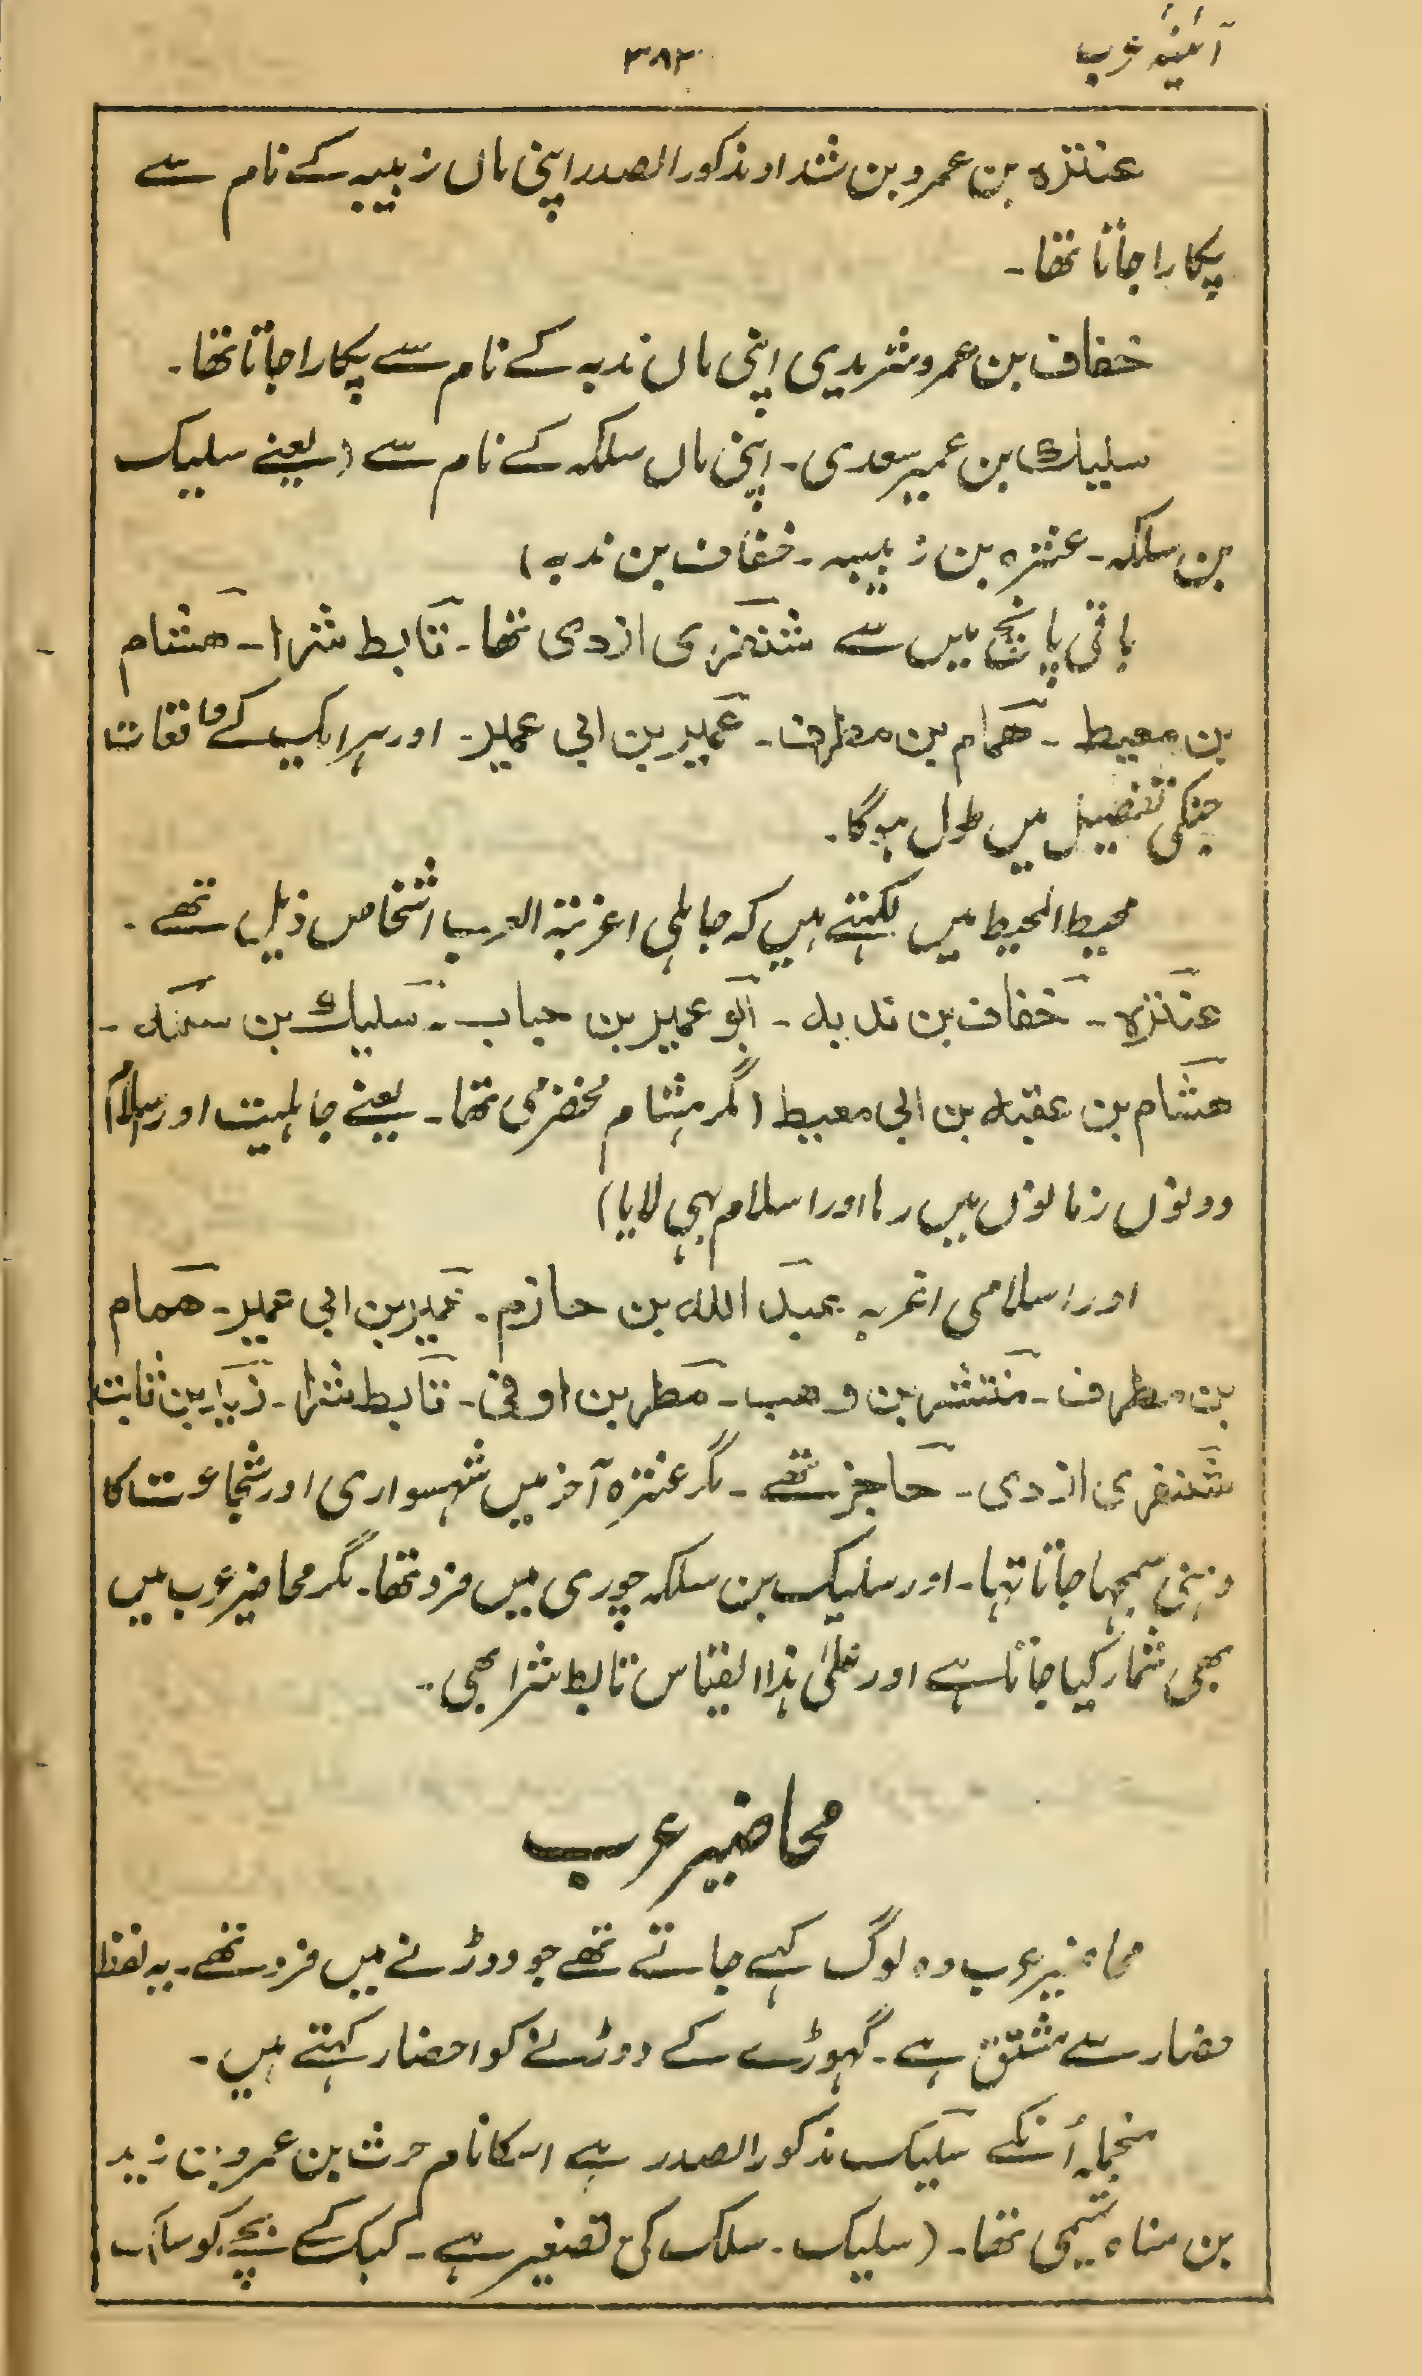 آئینۂ عرب
۳۸۲
عنترہ بن عمرو بن شداد مذکور الصدر اپنی ماں زبیبہ کے نام سے
پکارا جاتا تھا۔
خفاف بن عمرو شریدی اپنی ماں ندبہ کے نام سے پکارا جاتا تھا۔
سلیك بن عمیر سعدی۔ اپنی ماں سلکہ کے نام سے (یعنے سلیک
بن سلکہ۔ عنترہ بن زبیبہ۔ خفاف بن ندبہ)
باقی پانچ میں سے شنفری ازدی تھا۔ تابط شرا۔ هشام
بن معیط۔ همام بن مطرف۔ عمیر بن ابی عمیر۔ اور ہر ایک کے واقعات
جنکی تفصیل میں طول ہوگا۔
محیط المحیط میں لکہتے ہیں کہ جاہلی اغربۃ العرب اشخاص ذیل تھے۔
عنترہ۔ خفاف بن ندبہ۔ ابو عمیر بن حباب۔ سلیك بن سلکہ۔
هشام بن عقبہ بن ابی معیط (مگر ہشام مخضرمی تھا۔ یعنے جاہلیت اور اسلام
دونوں زمانوں میں رہا اور اسلام بہی لایا)
اور اسلامی اغربہ عبد اللہ بن حازم۔ عمیر بن ابی عمیر۔ همام
بن مطرف۔ منتشر بن وهب۔ مطر بن اوفی۔ تابط شرا۔ بن ثابت
شنفری ازدی۔ حاجز تھے۔ مگر عنترہ آخر میں شہسواری اور شجاعت کا
دہنی سمجہا جاتا تہا۔ اور سلیک بن سلکہ چوری میں فرد تھا۔ مگر محاضیر عرب میں
بھی شمار کیا جاتا ہے اور علیٰ ہذا القیاس تابط شرا بھی۔
محاضیر عرب
محاضیر عرب وہ لوگ کہے جاتے تھے جو دوڑنے میں فرد تھے۔ یہ لفظ
حضار سے مشتق ہے۔ گہوڑے کے دوڑنے کو احضار کہتے ہیں۔
منجملہ اُنکے سلیک مذکور الصدر ہے اسکا نام حرث بن عمرو بن زید
بن مناہ تمیمی تھا۔ (سلیک۔ سلک کی تصغیر ہے۔ کبک کے بچے کو سلک